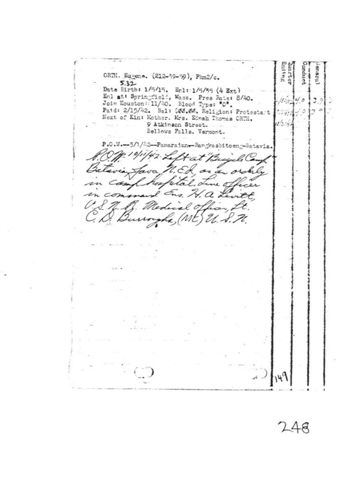 ORTH, Eugene. (212-59-59), PhM2/c.
5.32
Date Birth: 1/5/15. Enl: 1/5/39 (4 Ext)
Enl at: Springfield, Mass. Pres Rate: 8/40.
Joe Houston: 11/40. Blood Type: "O".
Paid: 2/15/42. Bal: Religion: Protestant
Next of Kin: Mother, Mrs. Ednah Thomas ORTH.
9 Atkinson Street.
Bellows Falls, Vermont.
P.O.W.--3/1/42-Pamaraian-Rangkasbitoeng-Batavia.
P.O.W. 10/11/42 Left at Bicycle Camp
Batavia, Java N.E.I. as an orderly
in camp hospital. Line officer
in command Ens. H. A. Levitt
U.S.N.R. Medical Officer, Lt.
C. D. Burroughs, (MC) U.S.N.
149
248